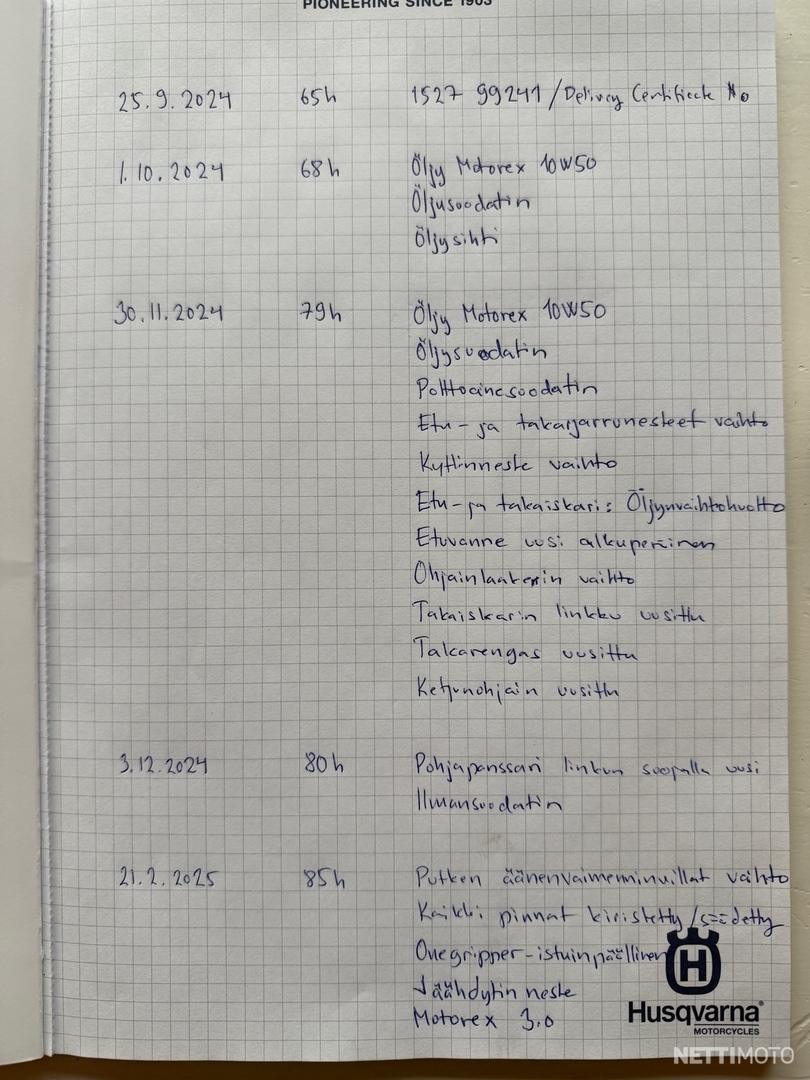 PIONEERING SINCE 1903
25.9.2024 65h 1527 99241 / Delivery Certificate No
1.10.2024 68h Öljy Motorex 10W50
Öljysuodatin
Öljysihti
30.11.2024 79h Öljy Motorex 10W50
Öljysuodatin
Polttoainesuodatin
Etu- ja takajarrunesteet vaihto
Kytkinneste vaihto
Etu- ja takaiskari: Öljynvaihtohuolto
Etuvanne uusi alkuperäinen
Ohjainlaakerin vaihto
Takaiskarin linkku uusittu
Takarengas uusittu
Ketjunohjain uusittu
3.12.2024 80h Pohjapanssari linkun suojalla uusi
Ilmansuodatin
21.2.2025 85h Putken äänenvaimenninvillat vaihto
Kaikki pinnat kiristetty/säädetty
Onegripper-istuinpäällinen
Jäähdytin neste
Motorex 3.0
H
Husqvarna
MOTORCYCLES
NETTIMOTO